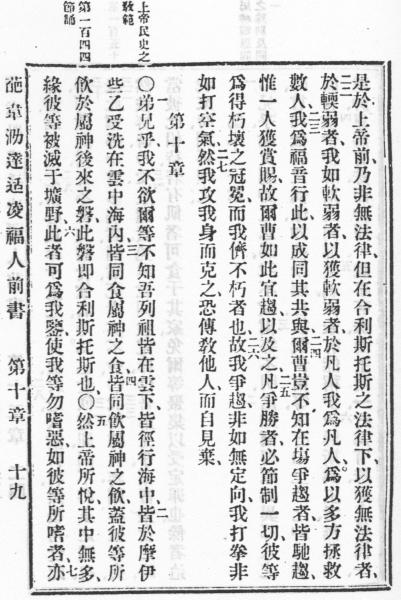 是於上帝前乃非無法律、但在合利斯托斯之法律下、以獲無法律者、
二二於輭弱者、我如軟弱者、以獲軟弱者、於凡人、我爲凡人、爲以多方拯救
數人、二三我爲福音行此、以成同其共與、二四爾曹豈不知在場爭趨者、皆馳趨、
惟一人獲賞賜、故爾曹如此宜趨以及之、二五凡爭勝者、必節制一切、彼等
爲得朽壞之冠冕、而我儕不朽者也、二六故我爭趨、非如無定向、我打拳、非
如打空氣、二七然我攻我身而克之、恐傳敎他人、而自見棄、
第十章
上帝民史之
敎範
○弟兄乎、我不欲爾等不知吾列祖皆在雲下、皆徑行海中、二皆於摩伊
第一百四四
節誦
些乙受洗在雲中海內、三皆同食屬神之食、四皆同飲屬神之飲、蓋彼等所
飲於屬神後來之磐、此磐卽合利斯托斯也、○五然上帝所悅、其中無多、
緣彼等被滅于壙野、六此者可爲我鑒、使我等勿嗜惡、如彼等所嗜者、七亦
福人前書 第十章 十九